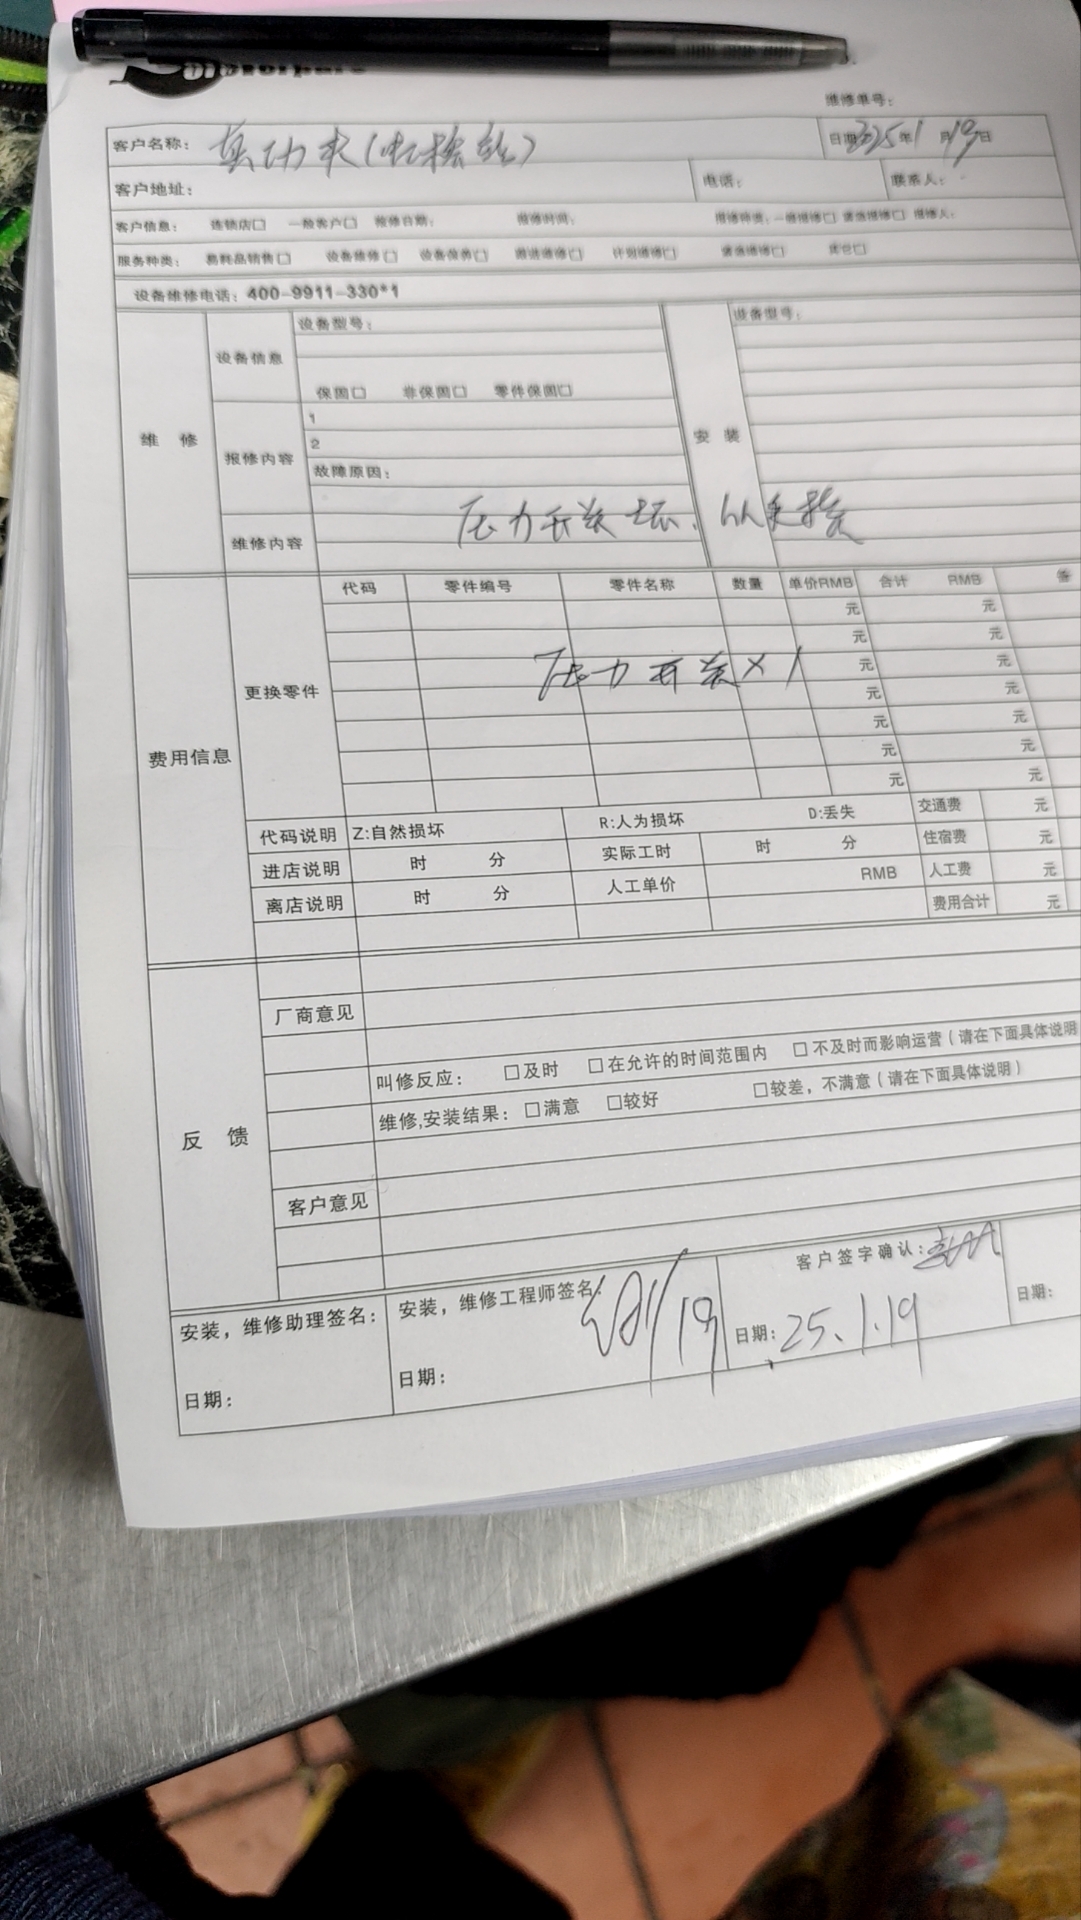 维修单号：
客户名称： 真功夫 日期 2025年1月19日
客户地址： 电话： 联系人：
客户信息： 连锁店□ 一般客户□ 报修日期： 报修时间： 维修人：
服务种类： 易耗品销售□ 设备维修□ 设备保养□ 跟进维修□ 计划维修□ 其它□
设备维修电话：400-9911-330*1
维 修
设备信息
设备型号：
保固□ 非保固□ 零件保固□
报修内容
1
2
故障原因：
维修内容
压力开关坏，
安 装
设备型号：
费用信息
更换零件
代码 零件编号 零件名称 数量 单价RMB 合计 RMB 备
元 元
元 元
压力开关×1 元 元
元 元
元 元
元 元
元 元
代码说明 Z:自然损坏 R:人为损坏 D:丢失 交通费 元
进店说明 时 分 实际工时 时 分 住宿费 元
离店说明 时 分 人工单价 RMB 人工费 元
费用合计 元
反 馈
厂商意见
叫修反应： □及时 □在允许的时间范围内 □不及时而影响运营（请在下面具体说明
维修,安装结果：□满意 □较好 □较差，不满意（请在下面具体说明）
客户意见
安装，维修助理签名：
日期：
安装，维修工程师签名：
日期：
客户签字确认：
日期：25.1.19
日期：